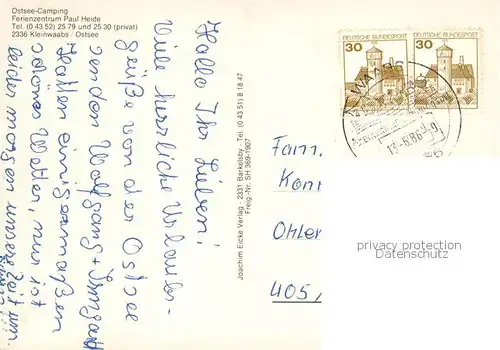 Ostsee-Camping
Ferienzentrum Paul Heide
Tel. (0 43 52) 25 79 und 25 30 (privat)
2336 Kleinwaabs / Ostsee
Hallo Ihr Lieben!
Viele herrliche Urlaubs-
grüße von der Ostsee
senden Wolfgang + Irmgard
Hatten einigermaßen
schönes Wetter, nur ist
leider morgen unsere Zeit um.
Joachim Eicke Verlag · 2331 Barkelsby · Tel. (0 43 51) 8 18 47
Freig.-Nr. SH 369-1907
30 DEUTSCHE BUNDESPOST
30 DEUTSCHE BUNDESPOST
13.-8.86
Fam.
Ohler
405/
privacy protection
Datenschutz